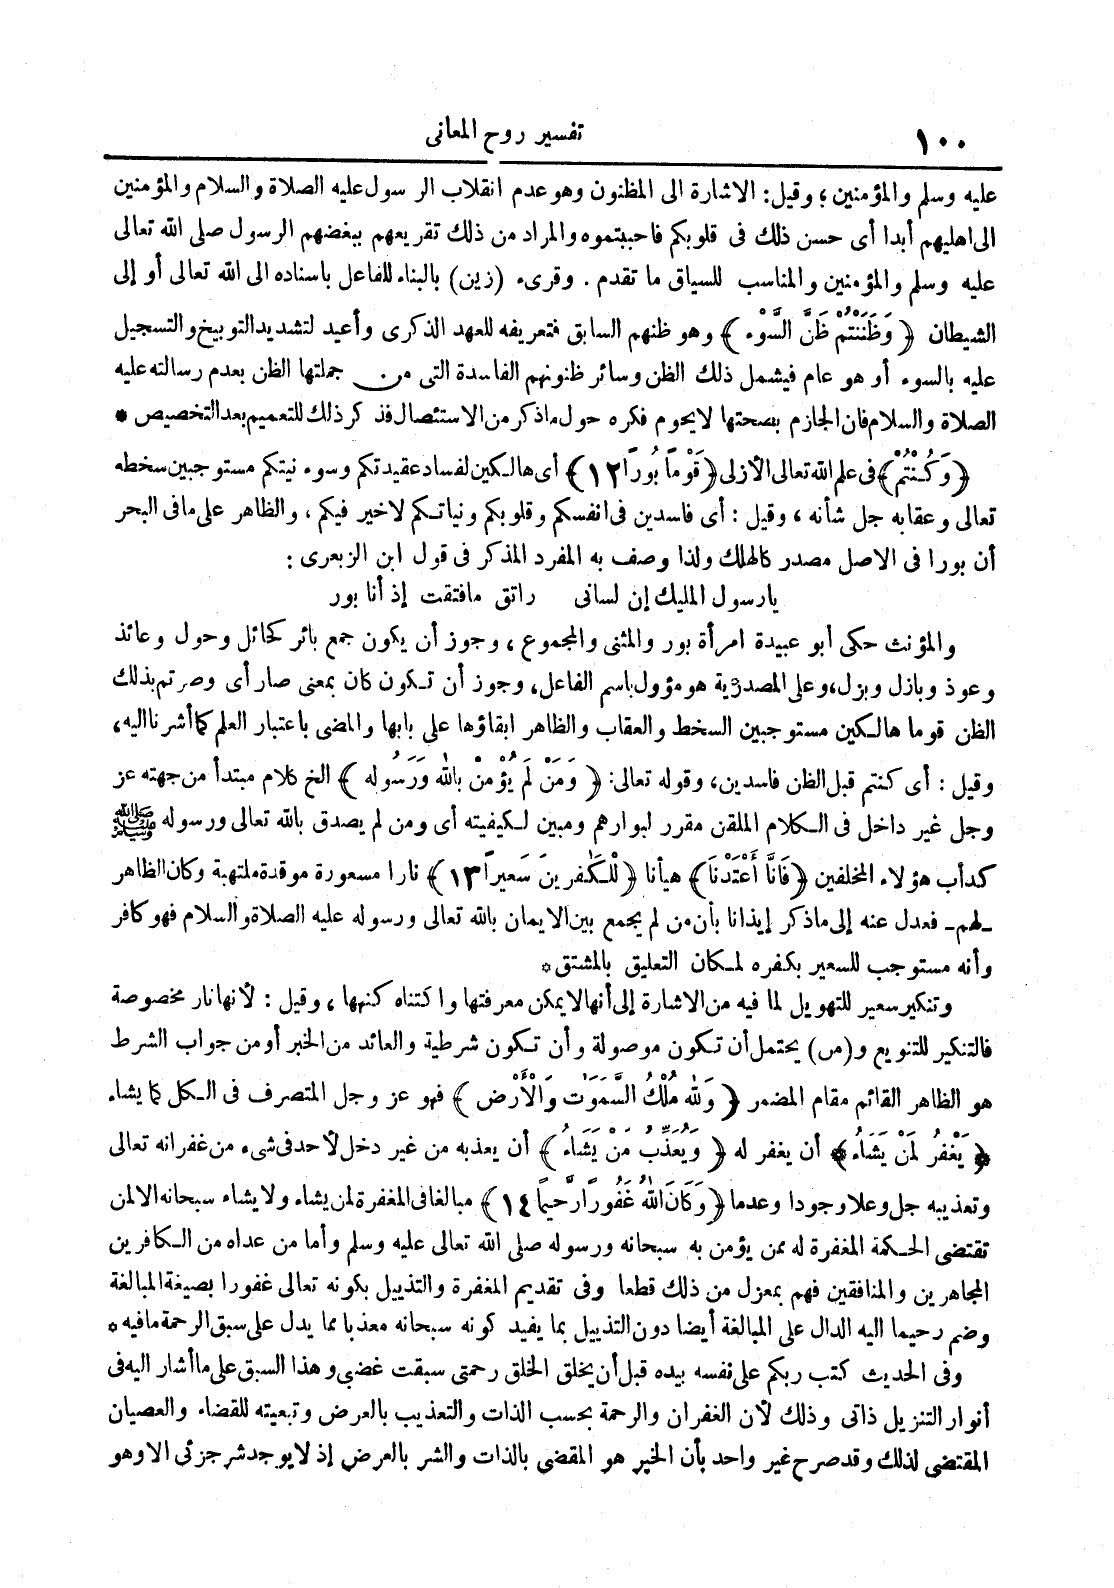 ١٠٠ تفسير روح المعانى
عليه وسلم والمؤمنين ؛ وقيل: الاشارة الى المظنون وهو عدم انقلاب الرسول عليه الصلاة والسلام والمؤمنين
الى اهليهم أبدا أى حسن ذلك فى قلوبكم فاحببتموه والمراد من ذلك تقريعهم ببغضهم الرسول صلى الله تعالى
عليه وسلم والمؤمنين والمناسب للسياق ما تقدم . وقرىء (زين) بالبناء للفاعل باسناده الى الله تعالى أو إلى
الشيطان ﴿ وَظَنَنْتُمْ ظَنَّ السَّوْء ﴾ وهو ظنهم السابق فتعريفه للعهد الذكرى وأعيد لتشديد التوبيخ والتسجيل
عليه بالسوء أو هو عام فيشمل ذلك الظن وسائر ظنونهم الفاسدة التى من جملتها الظن بعدم رسالته عليه
الصلاة والسلام فان الجازم بصحتها لا يحوم فكره حول ماذكر من الاستئصال فذ كر ذلك للتعميم بعد التخصيص *
﴿ وَكُنْتُمْ ﴾ فى علم الله تعالى الأزلى ﴿ قَوْماً بُوراً ١٢ ﴾ أى هالكين لفساد عقيدتكم وسوء نيتكم مستوجبين سخطه
تعالى وعقابه جل شأنه ، وقيل : أى فاسدين فى انفسكم وقلوبكم ونياتكم لاخير فيكم ، والظاهر على ما فى البحر
أن بورا فى الاصل مصدر كالهلك ولذا وصف به المفرد المذكر فى قول ابن الزبعرى :
يارسول المليك إن لسانى راتق مافتقت إذ أنا بور
والمؤنث حكى أبو عبيدة امرأة بور والمثنى والمجموع ، وجوز أن يكون جمع بائر كحائل وحول وعائذ
وعوذ وبازل وبزل، وعلى المصدرية هو مؤول باسم الفاعل، وجوز أن تكون كان بمعنى صار أى وصرتم بذلك
الظن قوما هالكين مستوجبين السخط والعقاب والظاهر ابقاؤها على بابها والمضى باعتبار العلم كما أشرنا اليه،
وقيل : أى كنتم قبل الظن فاسدين، وقوله تعالى: ﴿ وَمَنْ لَمْ يُؤْمنْ بالله وَرَسُوله ﴾ الخ كلام مبتدأ من جهته عز
وجل غير داخل فى الكلام الملقن مقرر لبوارهم ومبين لكيفيته أى ومن لم يصدق بالله تعالى ورسوله ﷺ
كدأب هؤلاء المخلفين ﴿ فَانَّا أَعْتَدْنَا ﴾ هيأنا ﴿ لِلْكَافرينَ سَعيراً ١٣ ﴾ نارا مسعورة موقدة ملتهبة وكان الظاهر
ـ لهم ـ فعدل عنه إلى ماذكر إيذانا بأن من لم يجمع بين الايمان بالله تعالى ورسوله عليه الصلاة والسلام فهو كافر
وأنه مستوجب للسعير بكفره لمكان التعليق بالمشتق *
وتنكير سعير للتهويل لما فيه من الاشارة إلى أنها لا يمكن معرفتها واكتناه كنهها ، وقيل : لأنها نار مخصوصة
فالتنكير للتنويع و(من) يحتمل أن تكون موصولة وأن تكون شرطية والعائد من الخبر أو من جواب الشرط
هو الظاهر القائم مقام المضمر ﴿ وَلله مُلْكُ السَّمَوَات وَالْأَرْض ﴾ فهو عز وجل المتصرف فى الكل كما يشاء
﴿ يَغْفرُ لمَنْ يَشَاءُ ﴾ أن يغفر له ﴿ وَيُعَذِّبُ مَنْ يَشَاءُ ﴾ أن يعذبه من غير دخل لأحد فى شىء من غفرانه تعالى
وتعذيبه جل وعلا وجودا وعدما ﴿ وَكَانَ اللهُ غَفُوراً رَحيماً ١٤ ﴾ مبالغا فى المغفرة لمن يشاء ولا يشاء سبحانه الالمن
تقتضى الحكمة المغفرة له ممن يؤمن به سبحانه ورسوله صلى الله تعالى عليه وسلم وأما من عداه من الكافرين
المجاهرين والمنافقين فهم بمعزل من ذلك قطعا وفى تقديم المغفرة والتذييل بكونه تعالى غفورا بصيغة المبالغة
وضم رحيما اليه الدال على المبالغة أيضا دون التذييل بما يفيد كونه سبحانه معذبا مما يدل على سبق الرحمة مافيه *
وفى الحديث كتب ربكم على نفسه بيده قبل أن يخلق الخلق رحمتى سبقت غضبى وهذا السبق على ما أشار اليه فى
أنوار التنزيل ذاتى وذلك لأن الغفران والرحمة بحسب الذات والتعذيب بالعرض وتبعيته للقضاء والعصيان
المقتضى لذلك وقد صرح غير واحد بأن الخير هو المقضى بالذات والشر بالعرض إذ لا يوجد شر جزئى الا وهو